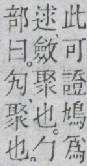 此可證鳩為
逑。斂聚也。勹
部曰。勼聚也。